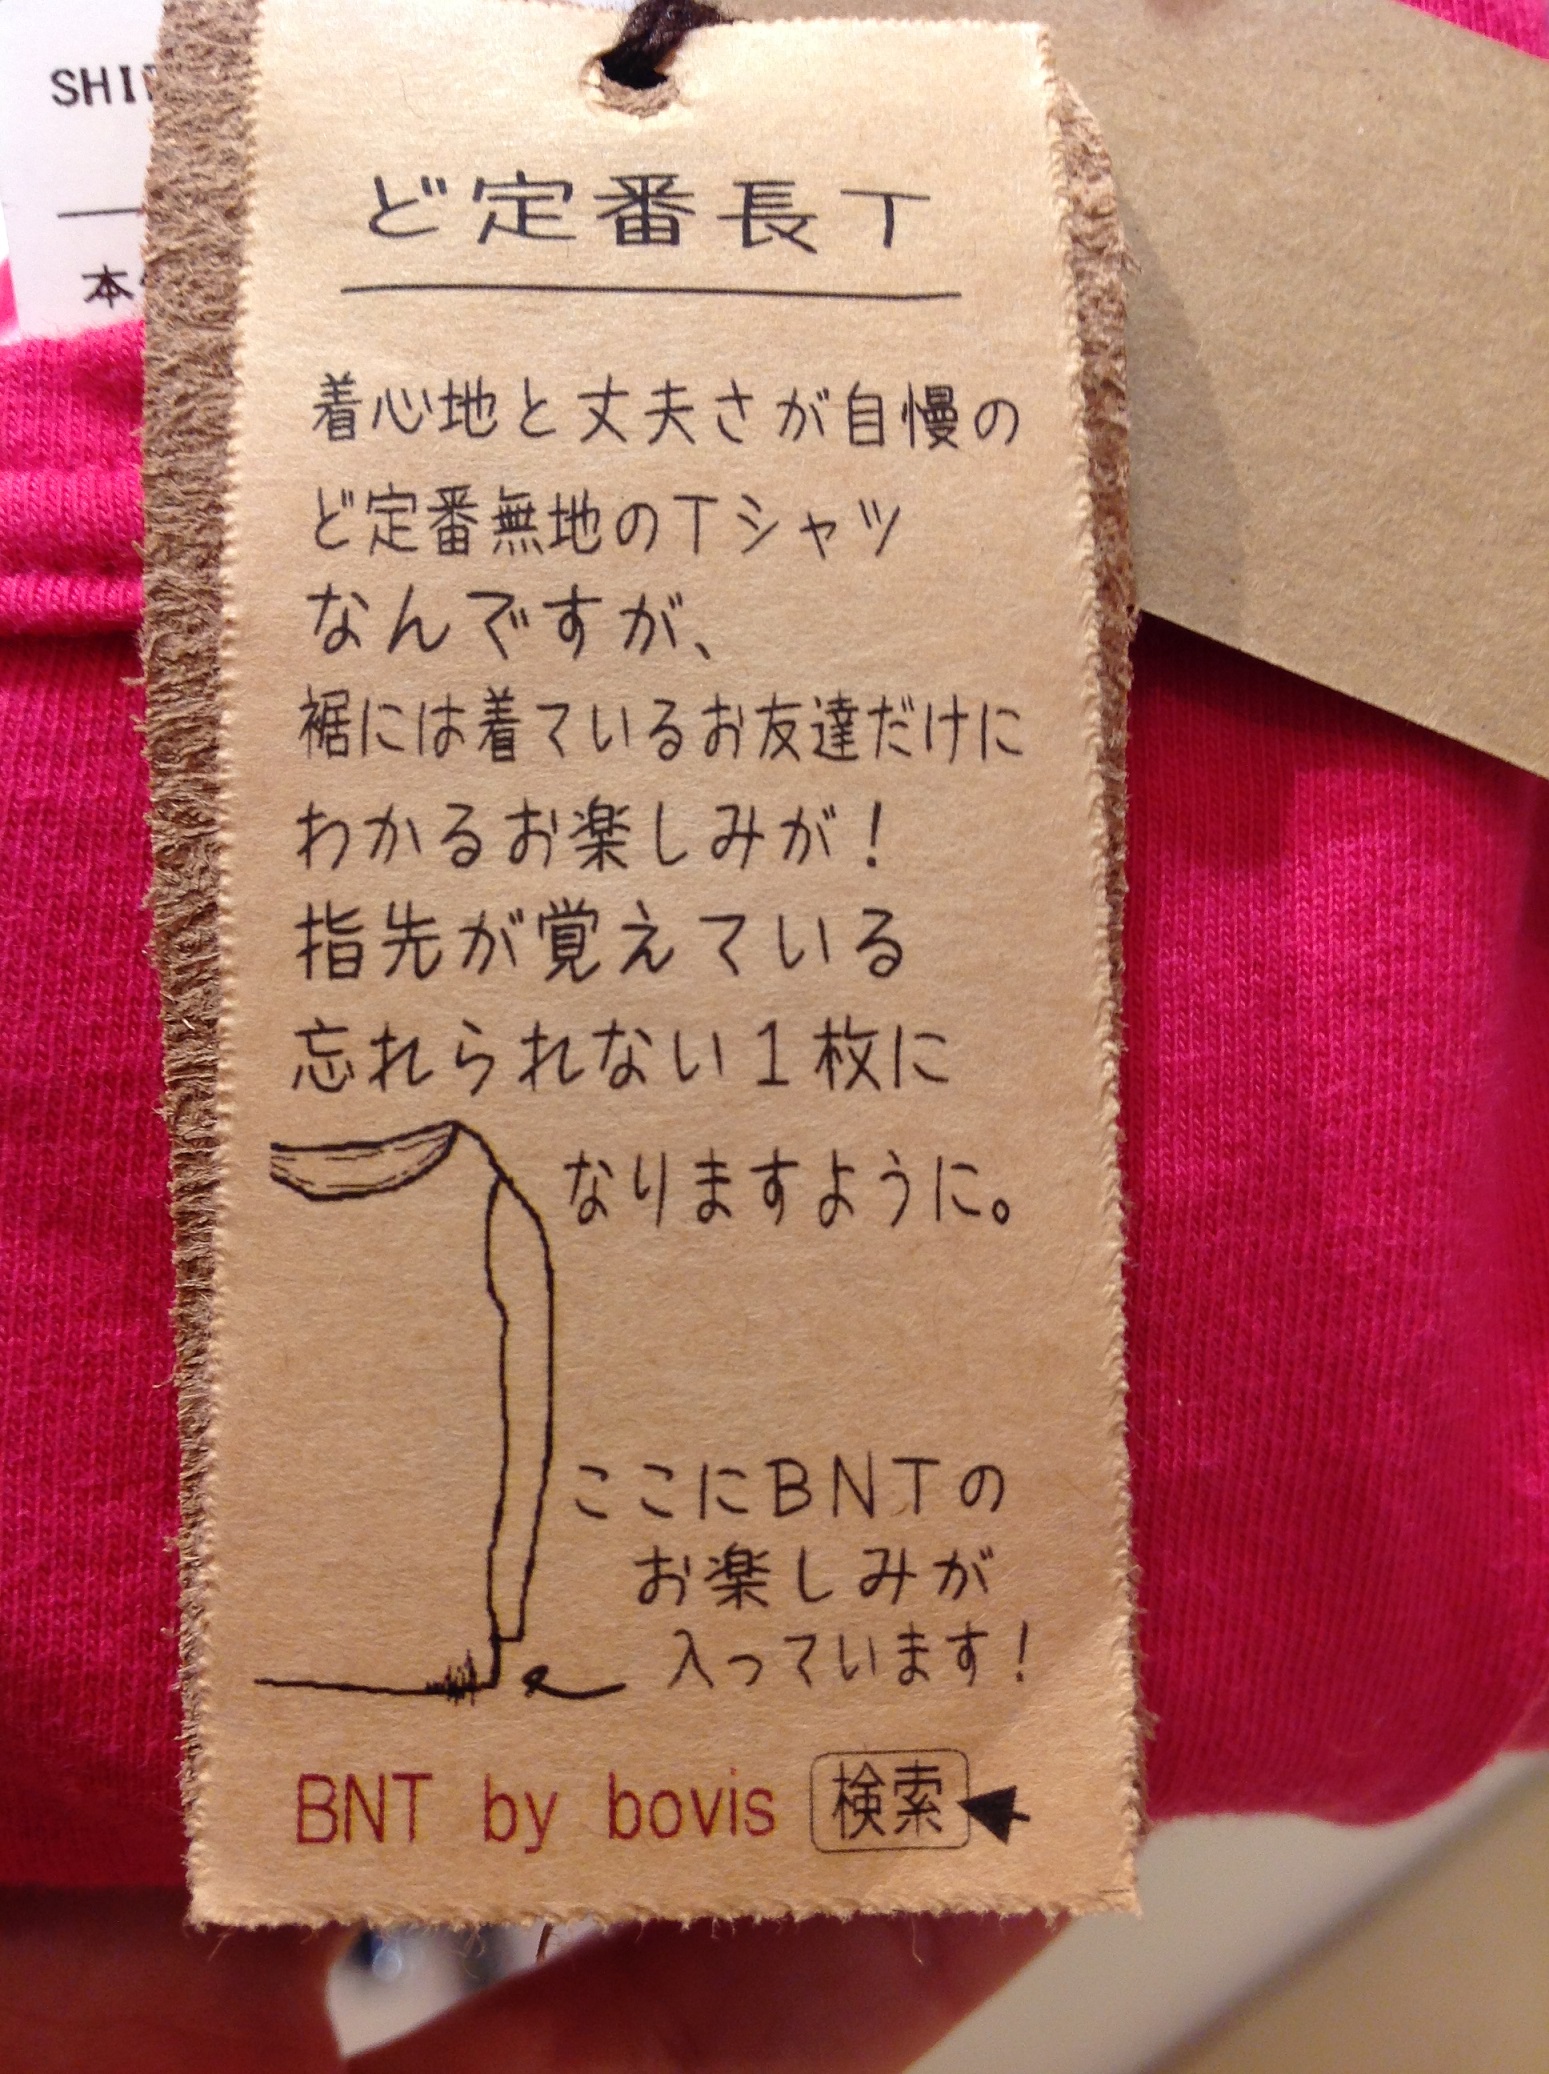 ど定番長T
着心地と丈夫さが自慢の
ど定番無地のTシャツ
なんですが、
裾には着ているお友達だけに
わかるお楽しみが！
指先が覚えている
忘れられない1枚に
なりますように。
ここにBNTの
お楽しみが
入っています！
BNT by bovis 検索